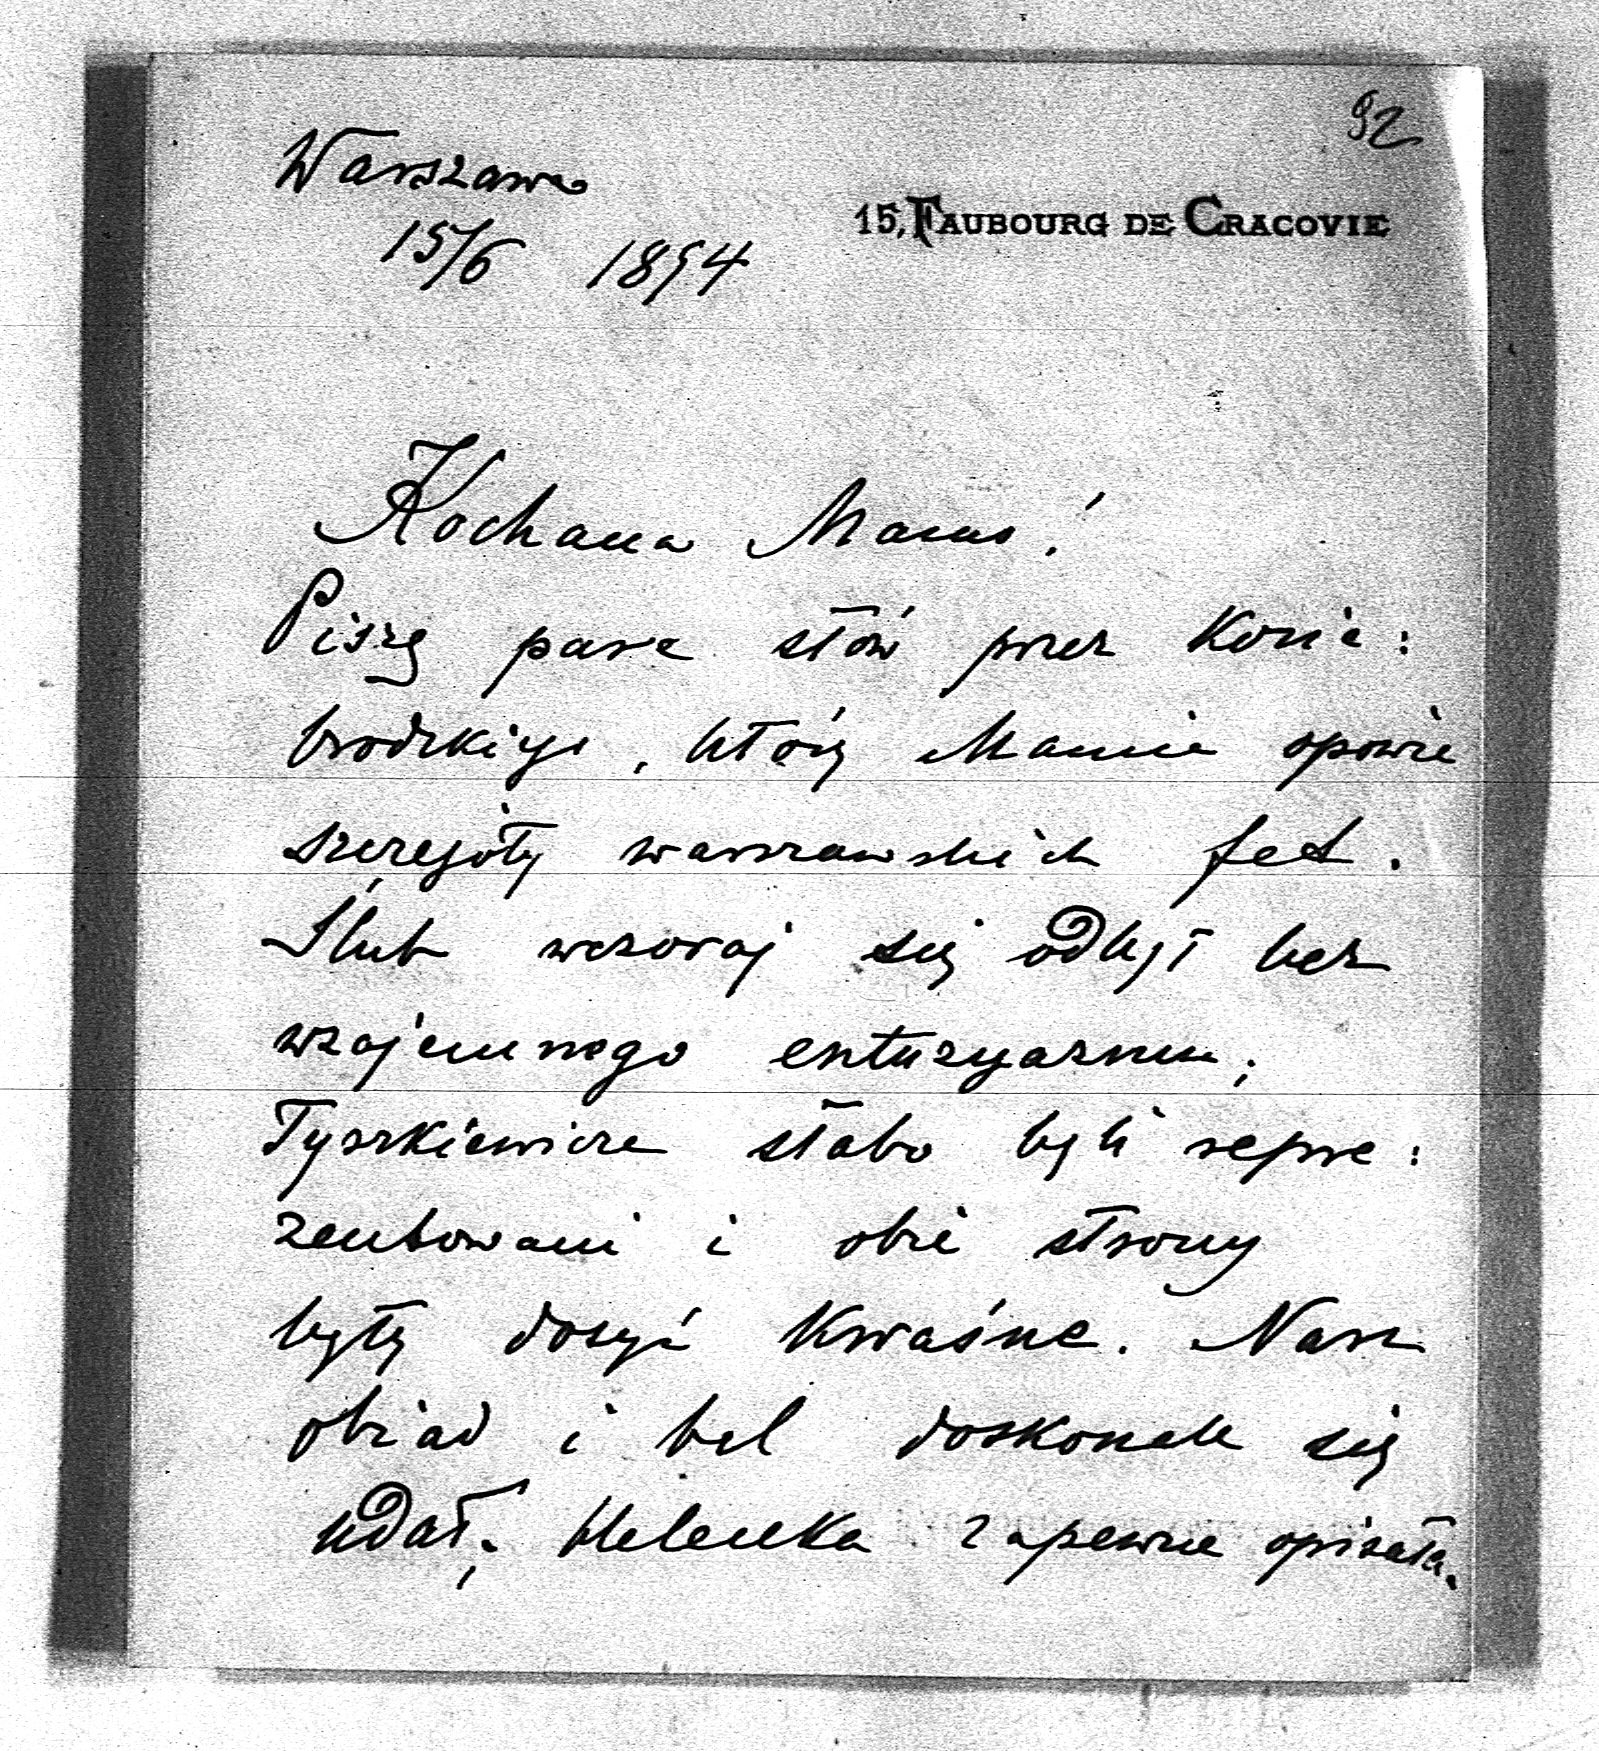 92
Warszawa
15, FAUBOURG DE CRACOVIE
15/6 1894
Kochana Mamo!
Piszę parę słów przez Kozie:
brodzkiego, który Mamie opowie
szczegóły warszawskich fet.
Ślub wczoraj się odbył bez
wzajemnego entuzyazmu;
Tyszkiewicze słabo byli repre:
zentowani i obie strony
były dosyć kwaśne. Nasz
obiad i bal doskonale się
udał; Helenka zapewne opisała.